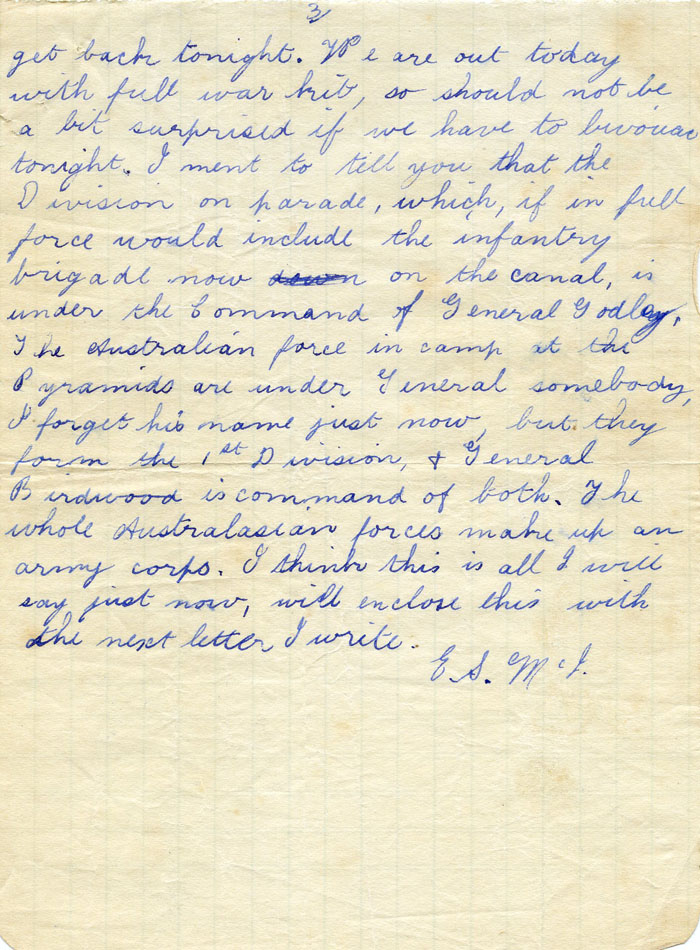 3
get back tonight. We are out today
with full war kit, so should not be
a bit surprised if we have to bivouac
tonight. I ment to tell you that the
Division on parade, which, if in full
force would include the infantry
brigade now down on the canal, is
under the Command of General Godley.
The Australian force in camp at the
Pyramids are under General somebody,
I forget his name just now, but they
form the 1st Division, & General
Birdwood is command of both. The
whole Australasian forces make up an
army corps. I think this is all I will
say just now, will enclose this with
the next letter I write.
E. S. McI.